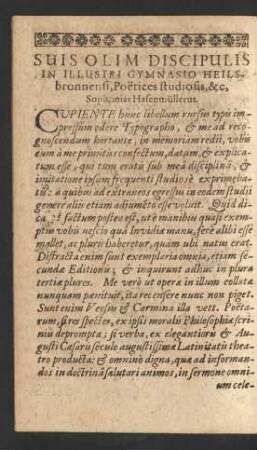 SUIS OLIM DISCIPULIS
IN ILLUSTRI GYMNASIO HEILS-
bronnensi, Poëtices studiosis, &c,
Sophonias Hasenmüllerus.
CUPIENTE hunc libellum rursus typis im-
pressum edere Typographo, & me ad reco-
gnoscendum hortante, in memoriam redii, vobis
eum à me primitus confectum, datum, & explica-
tum esse, qui tum eratis sub meâ disciplinâ, &
imitatione ipsum frequenti studiosè exprimeba-
tis: à quibus ad extraneos egressus in eodem studii
genere aliis etiam adjumēto esse voluit. Quid di-
ca? factum postea est, ut è manibus quasi exem-
ptus vobis nescio quâ Invidiæ manu, ferè alibi esse
mallet, ac pluris haberetur, quàm ubi natus erat.
Distracta enim sunt exemplaria omnia, etiam se-
cundæ Editionis; & inquirunt adhuc in plura
tertiæ plures. Me verò ut operæ in illum collatæ
nunquam pœnituit, ita recensere nunc non piget.
Sunt enim Versus & Carmina illa vett. Poëta-
rum, si res spectes, ex ipsis moralis Philosophiæ scri-
niis deprompta: si verba, ex elegantioris & Au-
gusti Cæsaris seculo augustissimæ Latinitatis thea-
tro producta: & omnino digna, quæ ad informan-
dos in doctrinâ salutari animos, in sermone omni-
um cele-